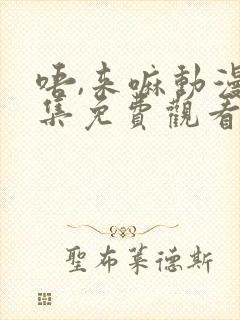 唔,来嘛動漫
集免費觀看
聖布萊德斯